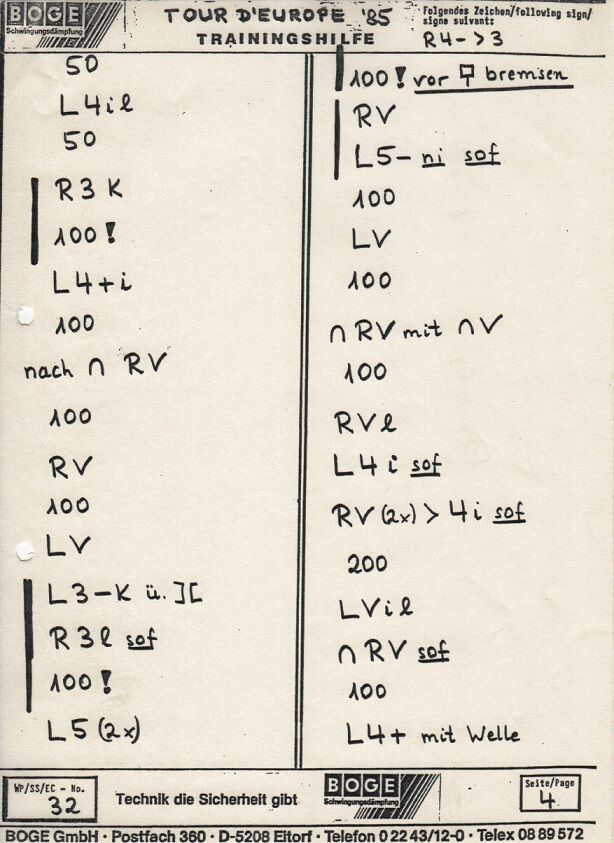 BOGE
Schwingungsdämpfung
TOUR D'EUROPE '85
TRAININGSHILFE
Folgendes Zeichen/following sign/
signe suivant:
R4->3
50
L4il
50
R3 K
100!
L4+i
100
nach ∩ RV
100
RV
100
LV
L3-K ü. ][
R3l sof
100!
L5 (2x)
100! vor bremsen
RV
L5- ni sof
100
LV
100
∩ RV mit ∩V
100
RVl
L4i sof
RV (2x) > 4i sof
200
LVil
∩ RV sof
100
L4+ mit Welle
WP/SS/EC - No.
32
Technik die Sicherheit gibt
BOGE
Schwingungsdämpfung
Seite/Page
4
BOGE GmbH · Postfach 360 · D-5208 Eitorf · Telefon 0 22 43/12-0 · Telex 08 89 572